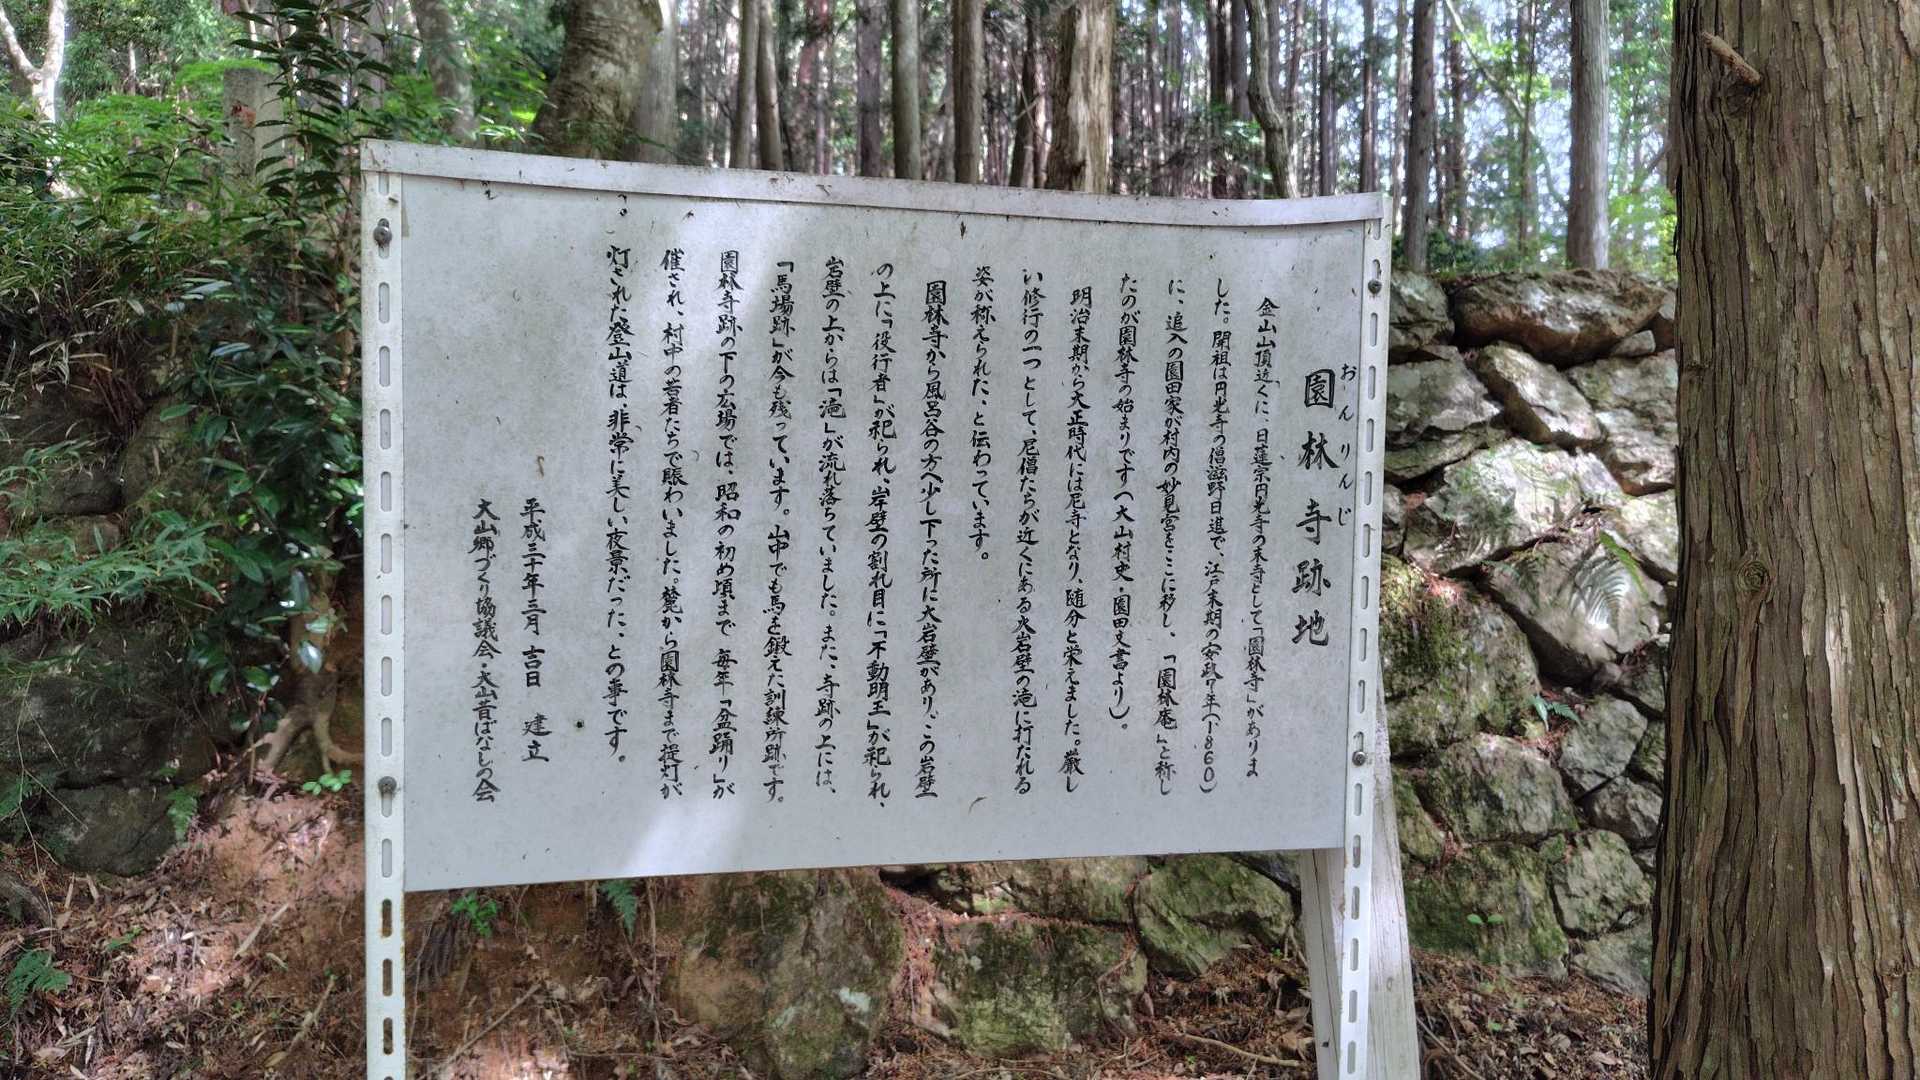 おんりんじ
園林寺跡地
金山山頂近くに、日蓮宗円光寺の末寺として「園林寺」がありま
した。開祖は円光寺の僧滋野日湛で、江戸末期の安政7年(1860)
に、追入の園田家が村内の妙見宮をここに移し、「園林庵」と称し
たのが園林寺の始まりです(大山村史・園田文書より)。
明治末期から大正時代には尼寺となり、随分と栄えました。厳し
い修行の一つとして、尼僧たちが近くにある大岩壁の滝に打たれる
姿が称えられた、と伝わっています。
園林寺から風呂谷の方へ少し下った所に大岩壁があり、この岩壁
の上に「役行者」が祀られ、岸壁の割れ目に「不動明王」が祀られ、
岩壁の上からは「滝」が流れ落ちていました。また、寺跡の上には、
「馬場跡」が今も残っています。山中でも馬を鍛えた訓練所跡です。
園林寺跡の下の広場では、昭和の初め頃まで毎年「盆踊り」が
催され、村中の若者たちで賑わいました。麓から園林寺まで提灯が
灯された登山道は、非常に美しい夜景だった、との事です。
平成三十年三月吉日 建立
大山郷づくり協議会・大山昔ばなしの会